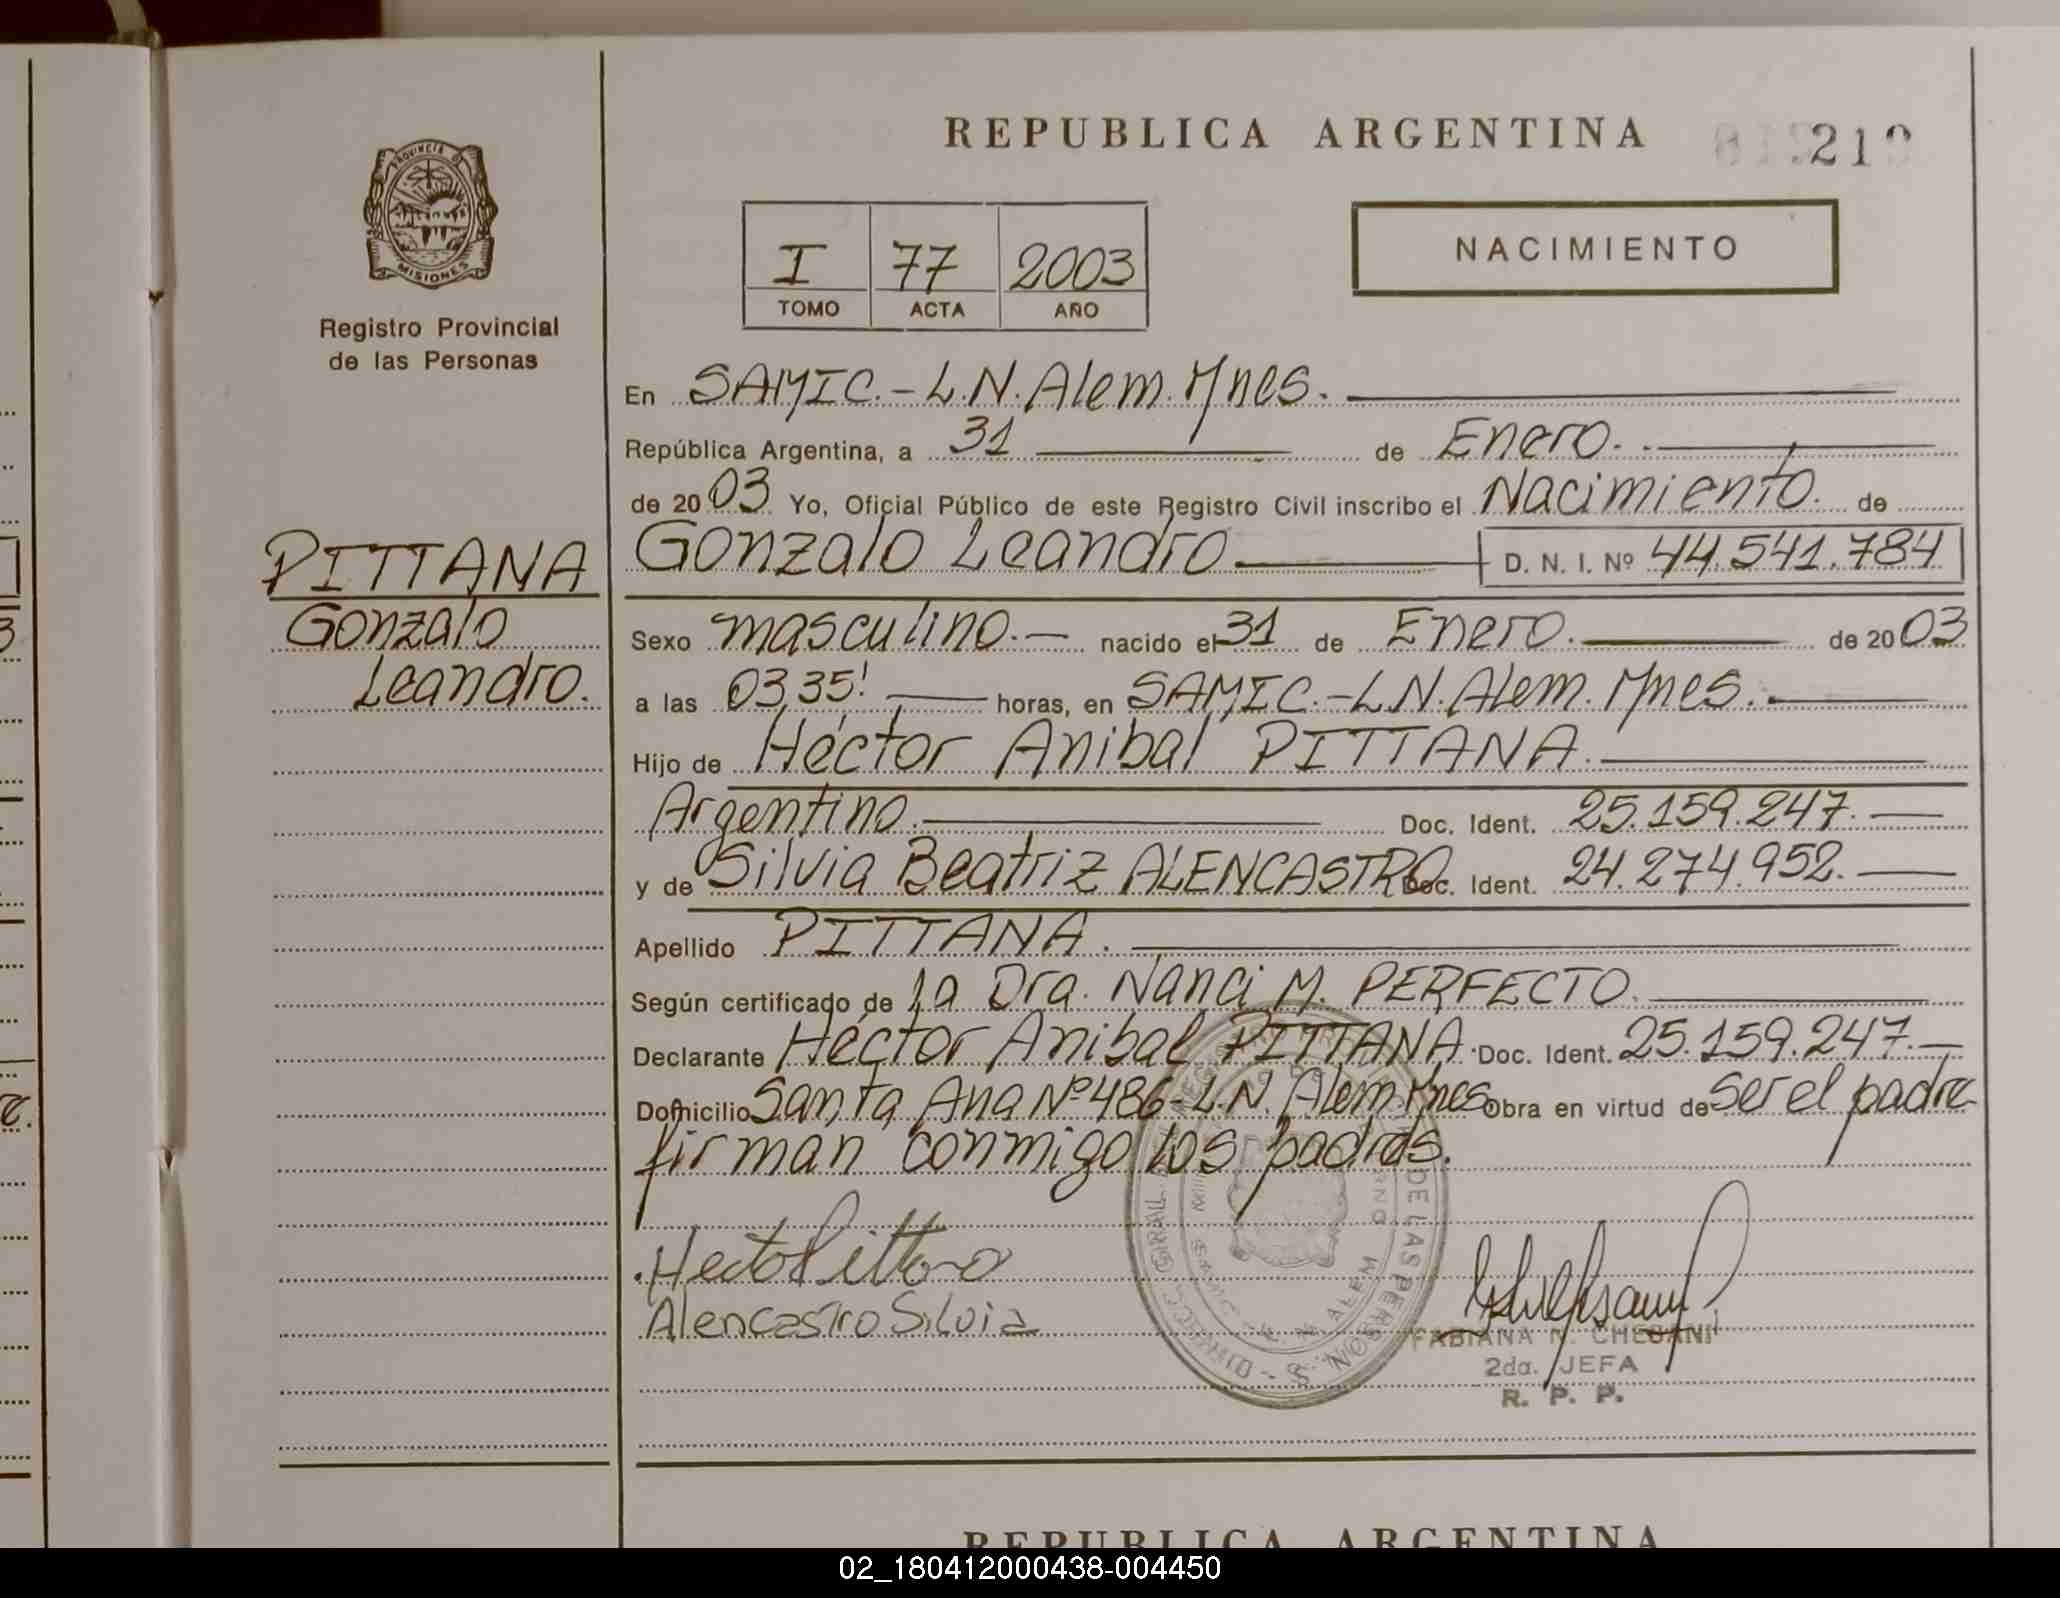 REPUBLICA ARGENTINA
219
PROVINCIA DE
MISIONES
Registro Provincial
de las Personas
NACIMIENTO
I 77 2003
TOMO ACTA AÑO
En SAMIC.-L.N.Alem.Mnes.
República Argentina, a 31 de Enero.
de 2003 Yo, Oficial Público de este Registro Civil inscribo el Nacimiento. de
PITTANA
Gonzalo
Leandro.
Gonzalo Leandro D. N. I. Nº 44.541.784
Sexo masculino.- nacido el 31 de Enero. de 2003
a las 03,35' horas, en SAMIC.-L.N.Alem.Mnes.
Hijo de Héctor Anibal PITTANA.
Argentino. Doc. Ident. 25.159.247.
y de Silvia Beatriz ALENCASTRO Doc. Ident. 24.274.952.
Apellido PITTANA.
Según certificado de la Dra. Nanci M. PERFECTO.
Declarante Héctor Anibal PITTANA. Doc. Ident. 25.159.247.
Domicilio Santa Ana Nº486-L.N.Alem.Mnes Obra en virtud de ser el padre
firman conmigo los padres.
Hector Pittana
Alencastro Silvia
DE LAS PERSONAS
L. N. ALEM
FABIANA N. CHESANI
2da. JEFA
R. P. P.
REPUBLICA ARGENTINA
02_180412000438-004450